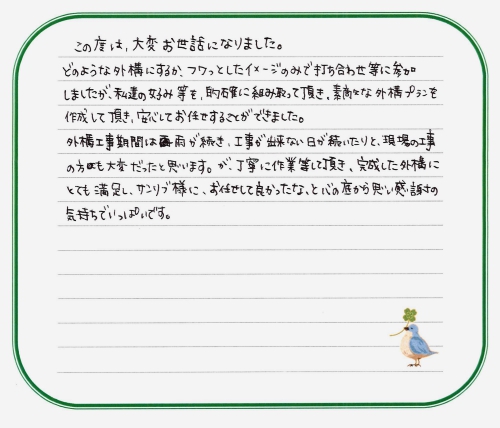 この度は、大変お世話になりました。
どのような外構にするか、フワっとしたイメージのみで打ち合わせ等に参加
しましたが、私達の好み等を、的確に組み取って頂き、素敵な外構プランを
作成して頂き、安心してお任せすることができました。
外構工事期間は雨が続き、工事が出来ない日が続いたりと、現場の工事
の方も大変だったと思います。が、丁寧に作業等して頂き、完成した外構に
とても満足し、サンリブ様に、お任せして良かったな、と心の底から思い感謝の
気持ちでいっぱいです。